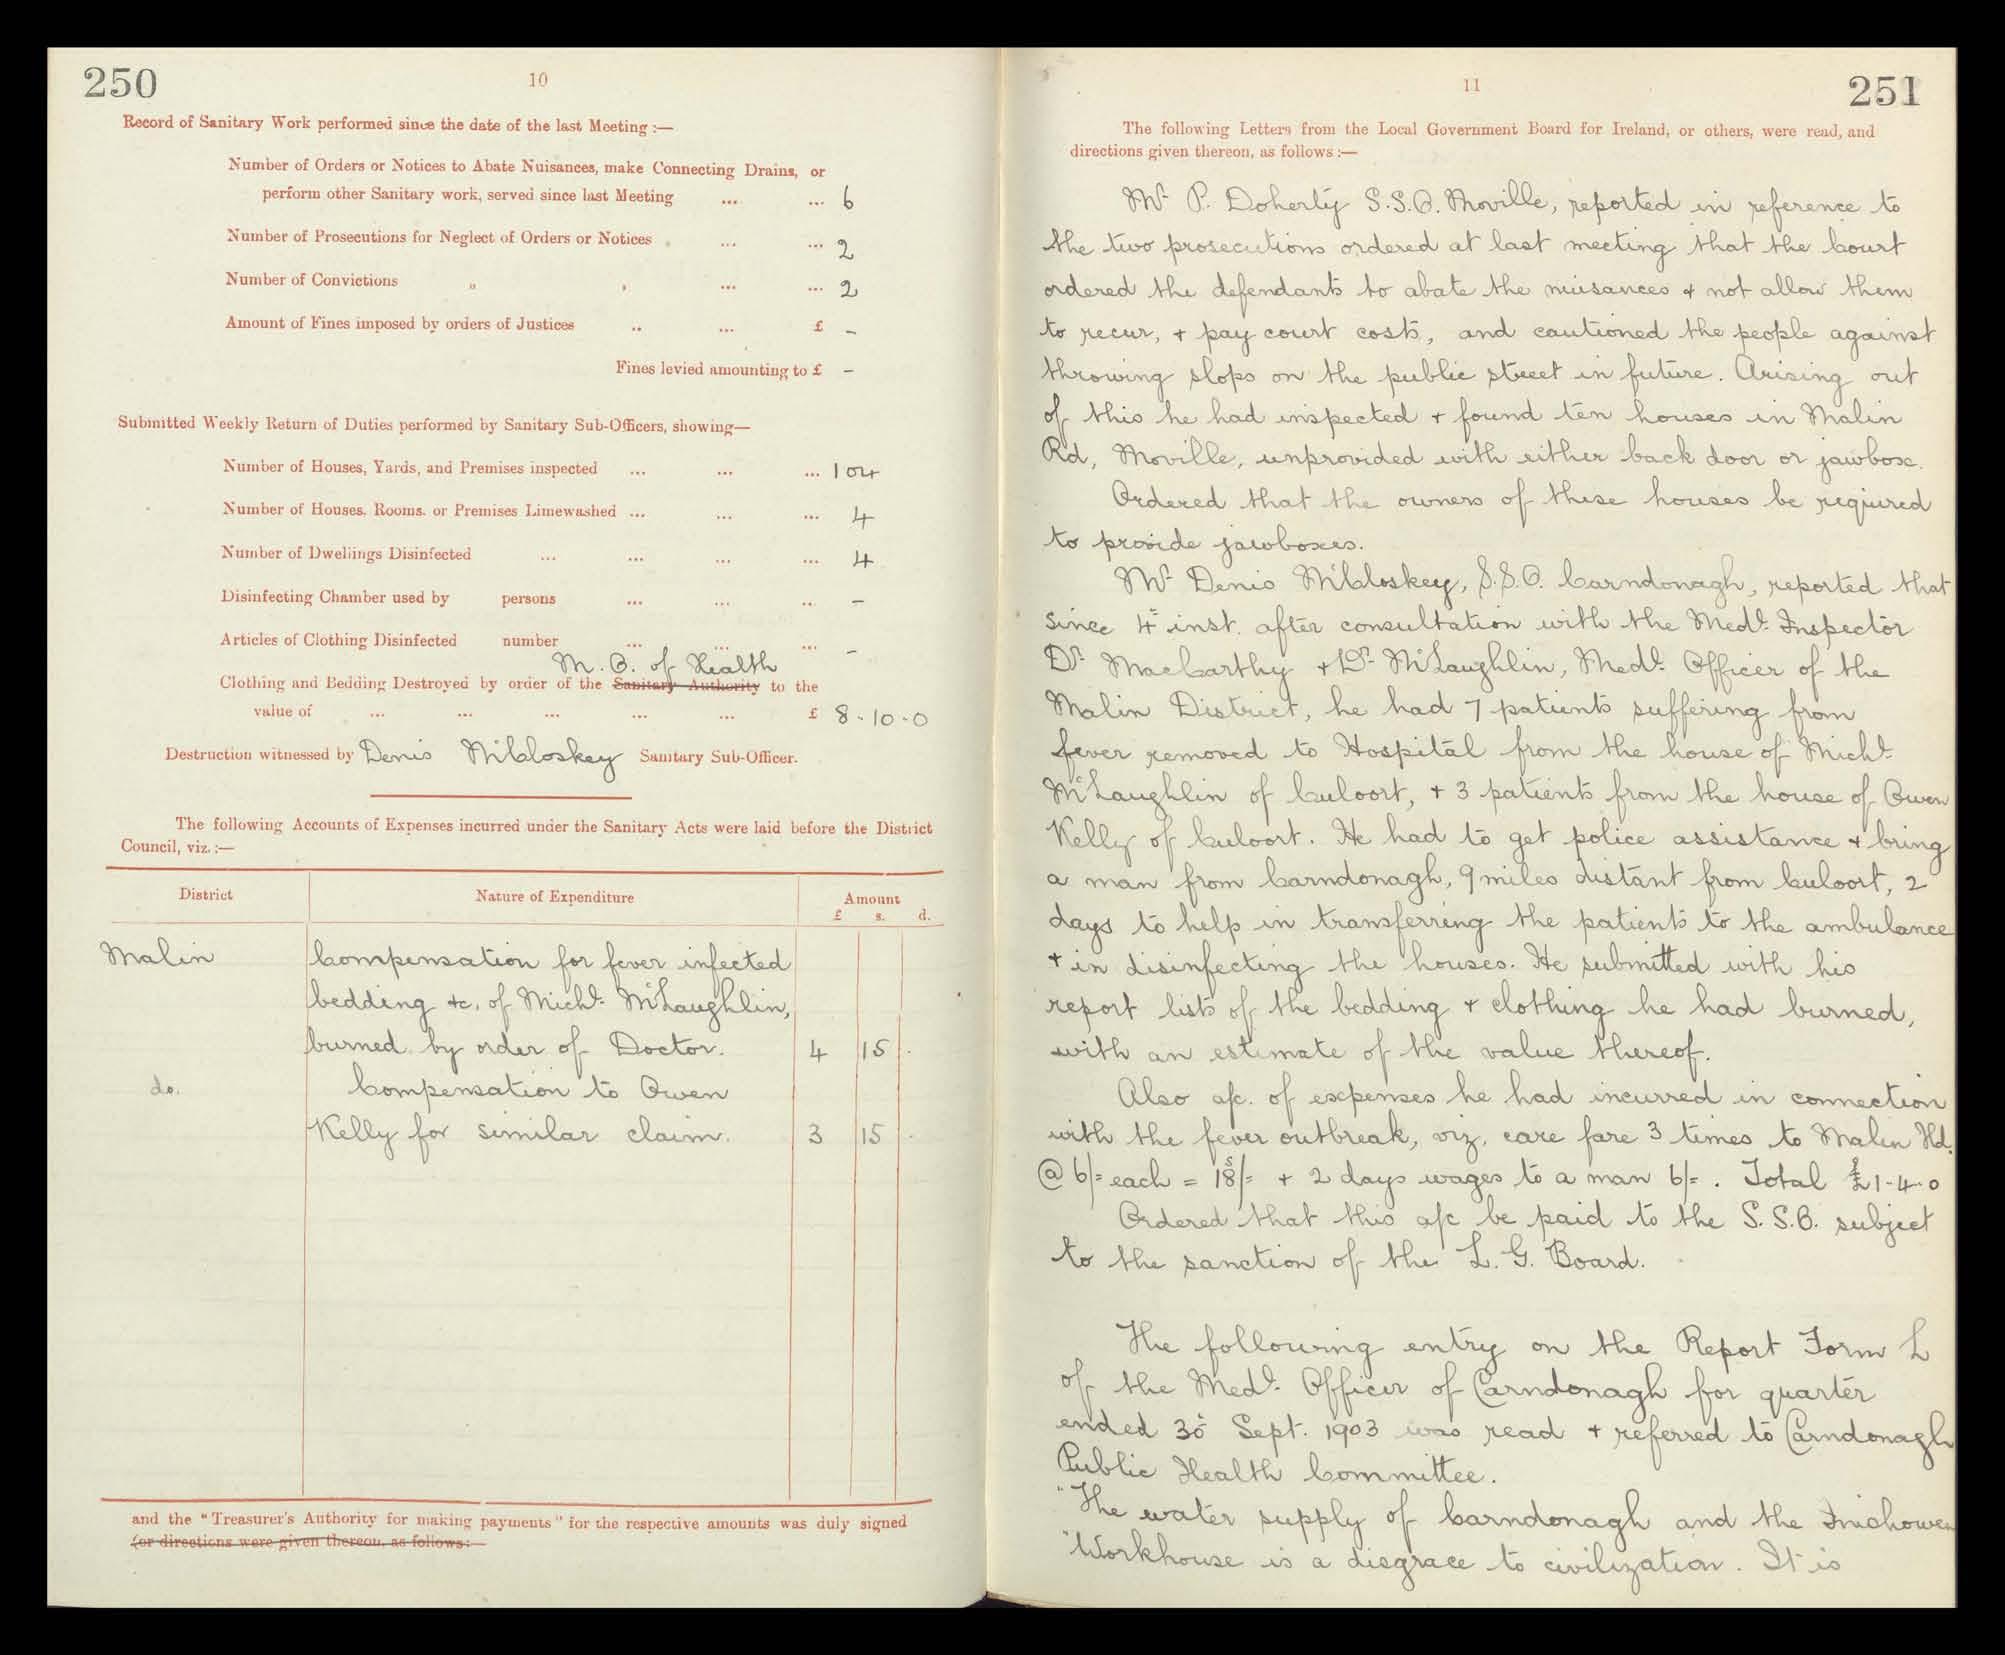 250
10
Record of Sanitary Work performed since the date of the last Meeting :—
Number of Orders or Notices to Abate Nuisances, make Connecting Drains, or
perform other Sanitary work, served since last Meeting ... ... 6
Number of Prosecutions for Neglect of Orders or Notices ... ... 2
Number of Convictions „ , ... ... 2
Amount of Fines imposed by orders of Justices .. ... £ –
Fines levied amounting to £ –
Submitted Weekly Return of Duties performed by Sanitary Sub-Officers, showing—
Number of Houses, Yards, and Premises inspected ... ... ... 104
Number of Houses, Rooms, or Premises Limewashed ... ... ... 4
Number of Dwellings Disinfected ... ... ... ... 4
Disinfecting Chamber used by persons ... ... ... –
Articles of Clothing Disinfected number ... ... ... –
M. O. of Health
Clothing and Bedding Destroyed by order of the Sanitary Authority to the
value of ... ... ... ... ... £ 8-10-0
Destruction witnessed by Denis McCloskey Sanitary Sub-Officer.
The following Accounts of Expenses incurred under the Sanitary Acts were laid before the District
Council, viz. :—
District Nature of Expenditure Amount
£ s. d.
Malin Compensation for fever infected
bedding &c, of Michl. McLaughlin,
burned by order of Doctor. 4 15 .
do. Compensation to Owen
Kelly for similar claim. 3 15 .
and the "Treasurer's Authority for making payments" for the respective amounts was duly signed
(or directions were given thereon, as follows:—
11
251
The following Letters from the Local Government Board for Ireland, or others, were read, and
directions given thereon, as follows :—
Mr. P. Doherty S.S.O. Moville, reported in reference to
the two prosecutions ordered at last meeting that the Court
ordered the defendants to abate the nuisances + not allow them
to recur, + pay court costs, and cautioned the people against
throwing slops on the public street in future. Arising out
of this he had inspected + found ten houses in Malin
Rd, Moville, unprovided with either back door or jawbox.
Ordered that the owners of these houses be required
to provide jawboxes.
Mr. Denis McCloskey, S.S.O. Carndonagh, reported that
since 4th inst. after consultation with the Medl. Inspector
Dr. MacCarthy + Dr. McLaughlin, Medl. Officer of the
Malin District, he had 7 patients suffering from
fever removed to Hospital from the house of Michl.
McLaughlin of Culoort, + 3 patients from the house of Owen
Kelly of Culoort. He had to get police assistance + bring
a man from Carndonagh, 9 miles distant from Culoort, 2
days to help in transferring the patients to the ambulance
+ in disinfecting the houses. He submitted with his
report lists of the bedding + clothing he had burned,
with an estimate of the value thereof.
Also a/c. of expenses he had incurred in connection
with the fever outbreak, viz, care fare 3 times to Malin Hd.
@ 6/= each = 18s/= + 2 days wages to a man 6/= . Total £1-4-0
Ordered that this a/c be paid to the S.S.O. subject
to the sanction of the L. G. Board.
The following entry on the Report Form L
of the Medl. Officer of Carndonagh for quarter
ended 30th Sept. 1903 was read + referred to Carndonagh
Public Health Committee.
"The water supply of Carndonagh and the Inishowen
"Workhouse is a disgrace to civilization. It is